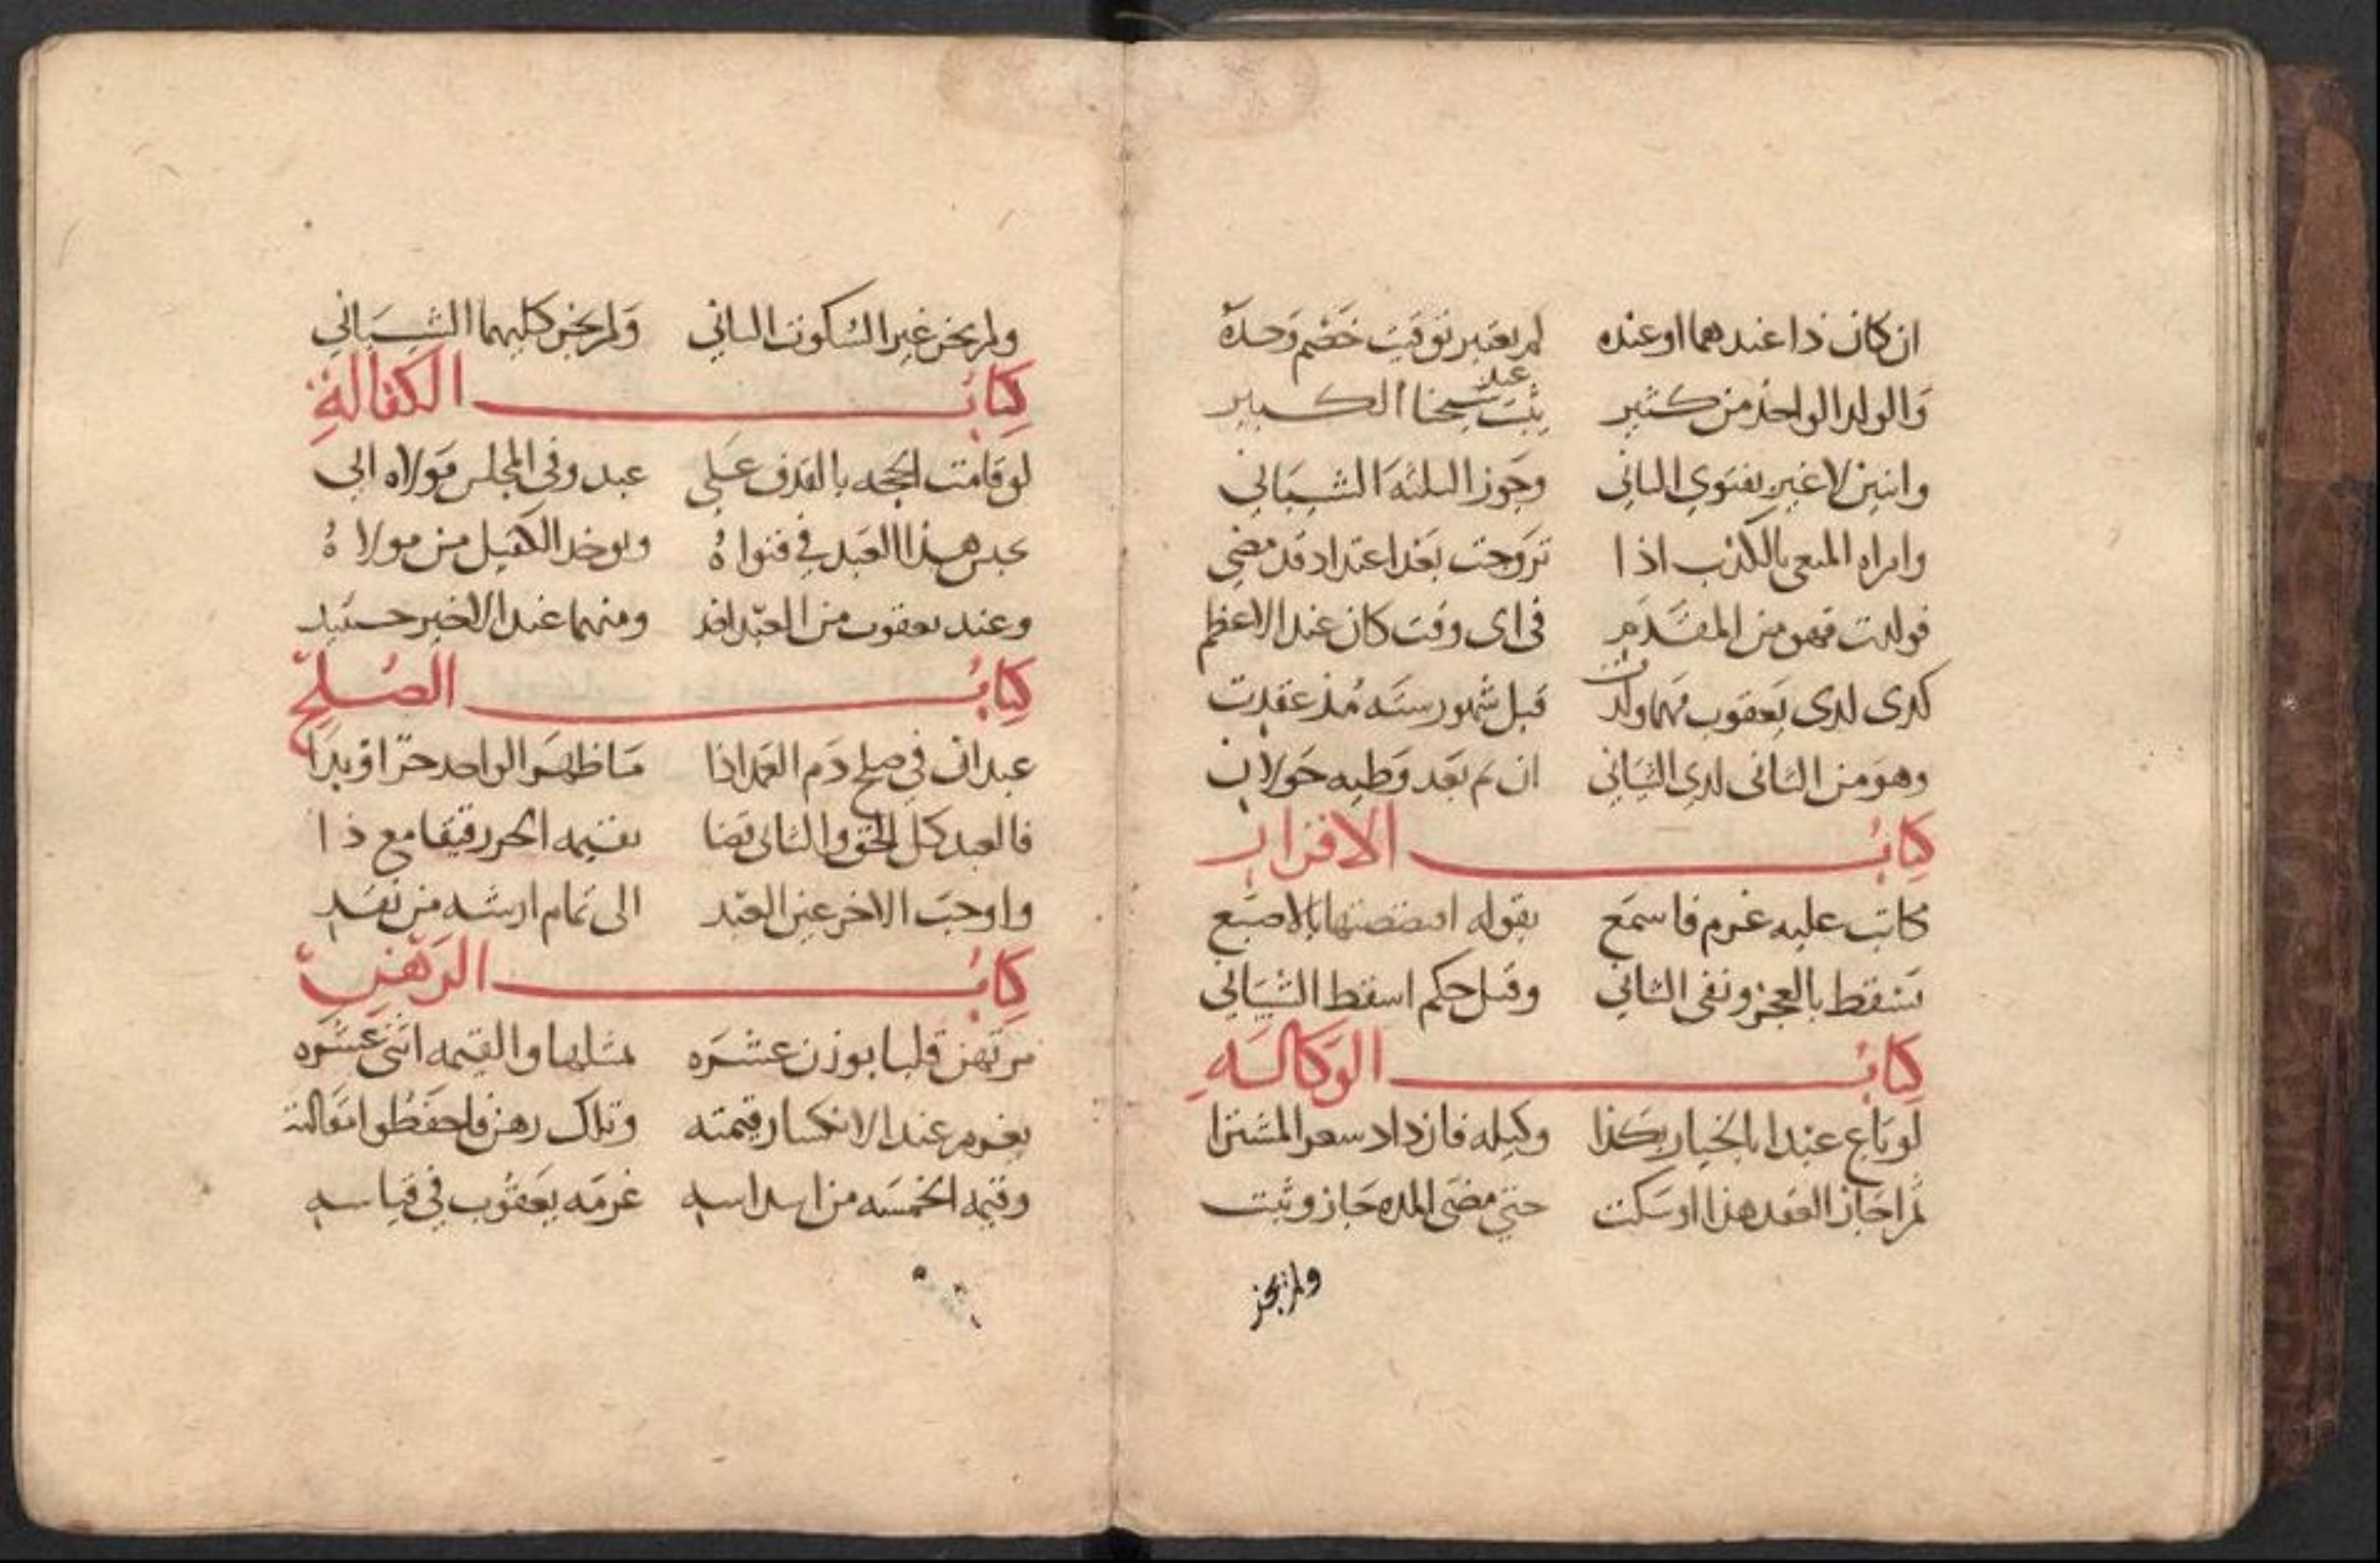 ان كان ذا عندهما او عنده لم يعتبر توقيت خصم وحده
والولد الواحد من كثير يثبت عند شيخنا الكبير
واثنين لا غير بفتوى الثاني وجوز الثلثة الشيباني
وامراه المنعي بالكذب اذا تزوجت بعد اعتداد قد مضى
فولدت فهو من المقدم في اى وقت كان عند الاعظم
كذى لدى يعقوب مهما ولدت قبل شهور سته مذ عقدت
وهو من الثانى لدى الشيبانى ان تم بعد وطيه حولان
كتاب الاقرار
مكاتب عليه غرم فاسمع بقوله افتضضتها بالاصبع
تسقط بالعجز ونفى الثاني وقبل حكم اسقط الشيباني
كتاب الوكاله
لو باع عبدا بالخيار بكذا وكيله فازداد سعر المشترا
ثم اجاز العقد هذا او سكت حتى مضى المده جاز وثبت
ولم يجز
ولم يجز غير السكوت الثاني ولم يجز كليهما الشيباني
كتاب الكفالة
لو قامت الحجه بالقذف على عبد وفي المجلس مولاه الى
حبس هذا العبد في فتواه ويوخذ الكفيل من مولاه
وعند يعقوب من العبد ومنهما عند الاخير
كتاب الصلح
عبدان في صلح دم العمد اذا ما ظهر الواحد حرا او بدا
فالعبد كل الحق والثانى قضا بقيمه الحر رقيقا مع ذا
واوجب الاخر غير العبد الى تمام ارشه من نقد
كتاب الرهن
مرتهن قلبا بوزن عشره مثلها والقيمه اثنى عشره
يغرم عند الانكسار قيمته وتلك رهن فاحفظوا مقالته
وقيمه الخمسه من اسداسه غرمه يعقوب في قياسه